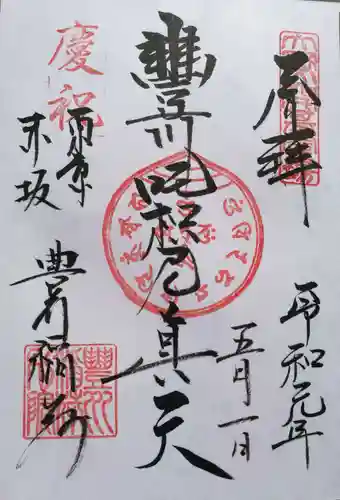 奉拝
令和元年
五月一日
豐川吒枳尼真天
慶祝
東京
赤坂
豊川稲荷